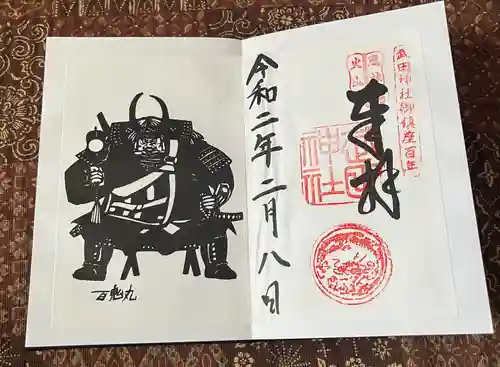 武田神社御鎮座百年
奉拝
風林
火山
武田
神社
令和二年二月八日
百鬼丸